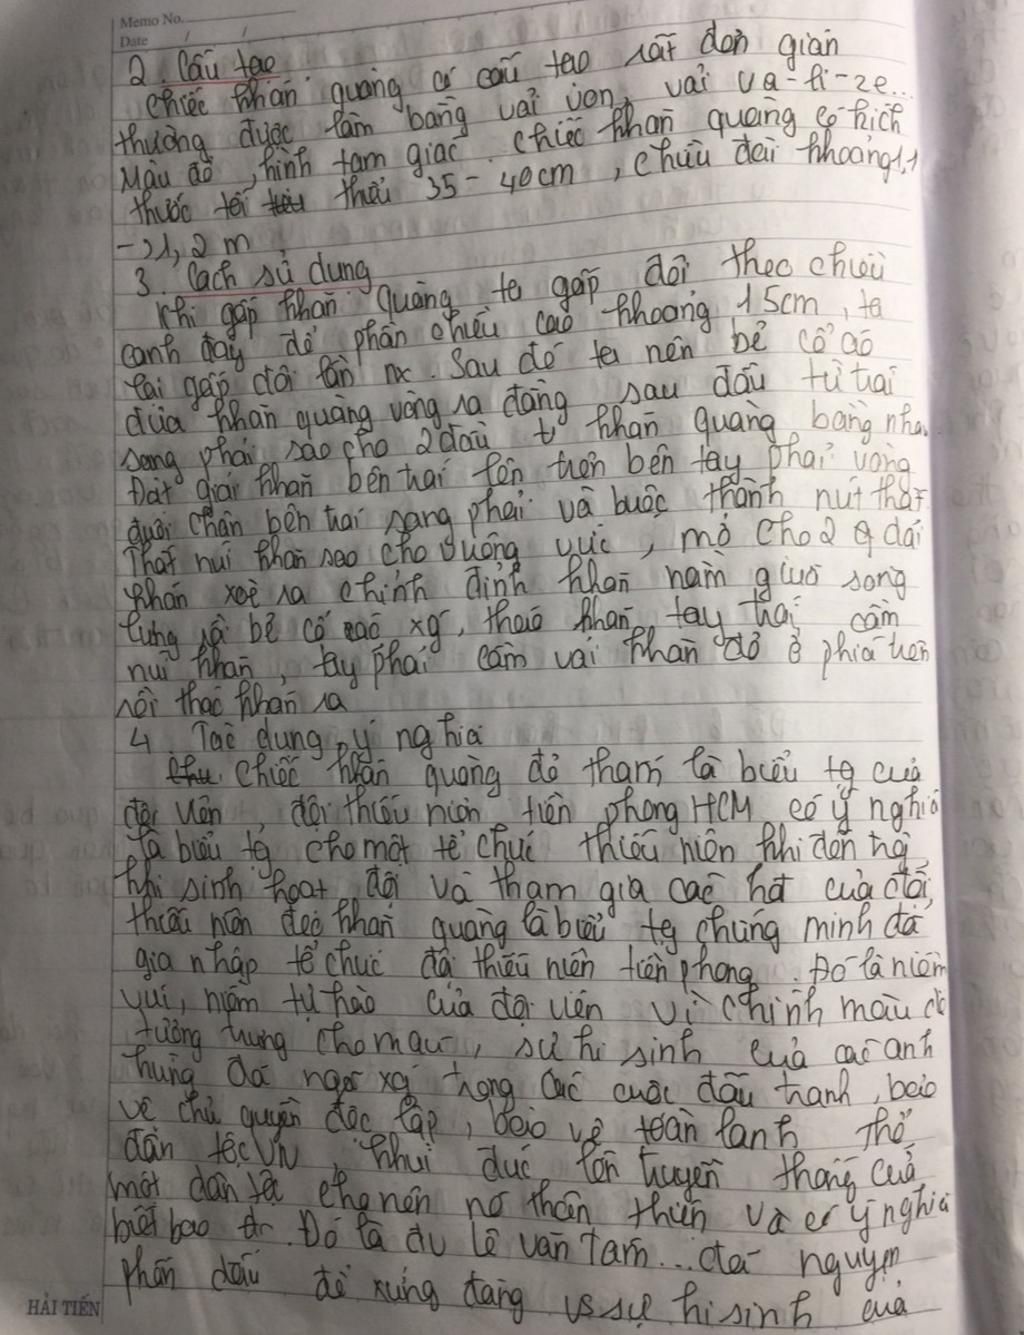 Memo No.
Date / /
2. Cấu tạo
Chiếc khăn quàng có cấu tạo rất đơn giản
thường được làm bằng vải von, vải va-ti-ze...
Màu đỏ, hình tam giác. Chiếc khăn quàng có kích
thước tối thiểu 35 - 40cm, chiều dài khoảng 1,1
-> 1,2 m
3. Cách sử dụng
Khi gấp khăn quàng, ta gấp đôi theo chiều
cạnh đáy để phần chiều cao khoảng 15cm, ta
lại gấp đôi lần nx. Sau đó ta nên bẻ cổ áo
đưa khăn quàng vòng ra đằng sau đầu từ trái
sang phải sao cho 2 đầu khăn quàng bằng nha
Đặt giải khăn bên trái lên trên bên tay phải vòng
dưới chân bên trái sang phải và buộc thành nút thắt
Thắt nút khăn sao cho vuông vức, mở cho 2 dải
khăn xoè ra chỉnh định khăn nằm giữa song
lưng rồi bẻ cổ áo xg, tháo khăn, tay trái cầm
nút khăn, tay phải cầm vải khăn đỏ ở phía trên
rồi tháo khăn ra
4. Tác dụng, ý nghĩa
Chiếc khăn quàng đỏ thắm là biểu tg của
đội viên, đội thiếu niên tiền phong HCM có ý nghĩa
là biểu tg cho một tổ chức thiếu niên khi đến
khi sinh hoạt đội và tham gia các hđ của đội,
thiếu niên đeo khăn quàng là biểu tg chứng minh đã
gia nhập tổ chức đội thiếu niên tiền phong. Đó là niềm
vui, niềm tự hào của đội viên vì chính màu đỏ
tượng trưng cho máu, sự hi sinh của các anh
hùng đã ngã xg trong các cuộc đấu tranh, bảo
vệ chủ quyền độc lập, bảo vệ toàn lãnh thổ
dân tộc VN, khui đúc lên truyền thống của
một dân tộc cho nên nó thân thiện và có ý nghĩa
biết bao. Đó là Lê Văn Tám... đã nguyện
phấn đấu để xứng đáng vs sự hi sinh của
HẢI TIẾN